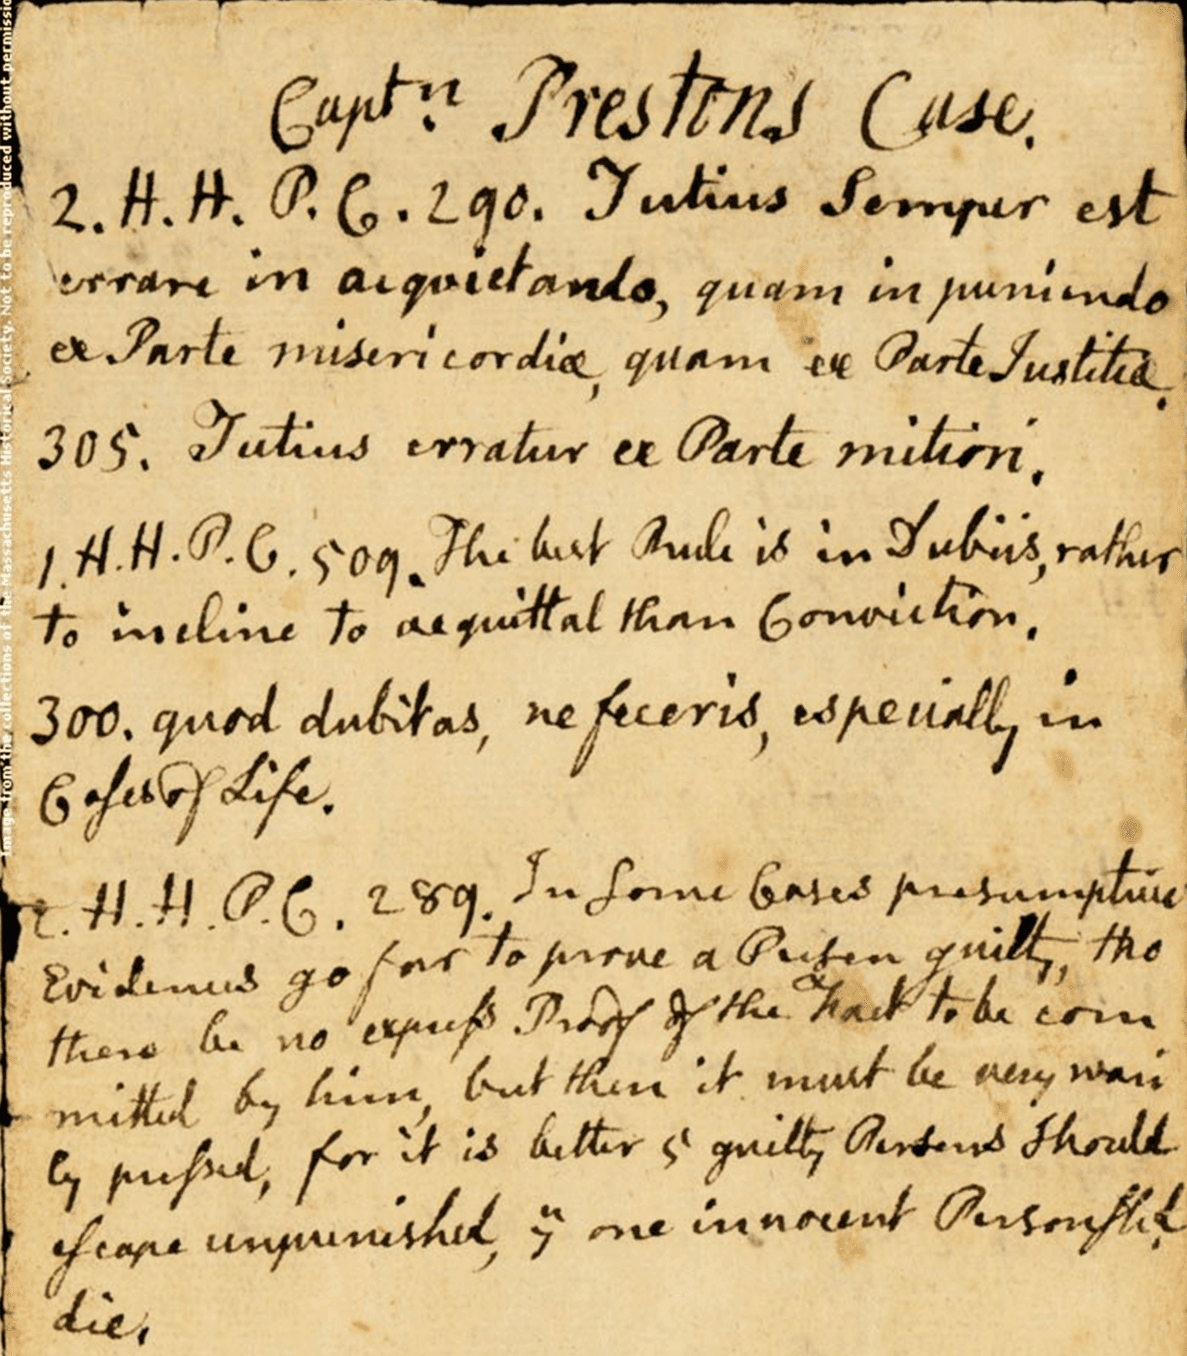 Image from the collections of the Massachusetts Historical Society. Not to be reproduced without permissio
Captⁿ. Prestons Case.
2. H. H. P. C. 290. Tutius Semper est
errare in acquietando, quam in puniendo
ex Parte misericordiæ, quam ex Parte Justitiæ.
305. Tutius erratur ex Parte mitiori.
1. H. H. P. C. 509. The best Rule is in Dubiis, rather
to incline to acquittal than Conviction.
300. quod dubitas, ne feceris, especially in
Cases of Life.
2. H. H. P. C. 289. In some Cases presumptive
Evidences go far to prove a Person guilty, tho
there be no express Proof of the Fact to be com
mitted by him, but then it must be very wari
ly pressed, for it is better 5 guilty Persons should
escape unpunished, yⁿ one innocent Person shd.
die.